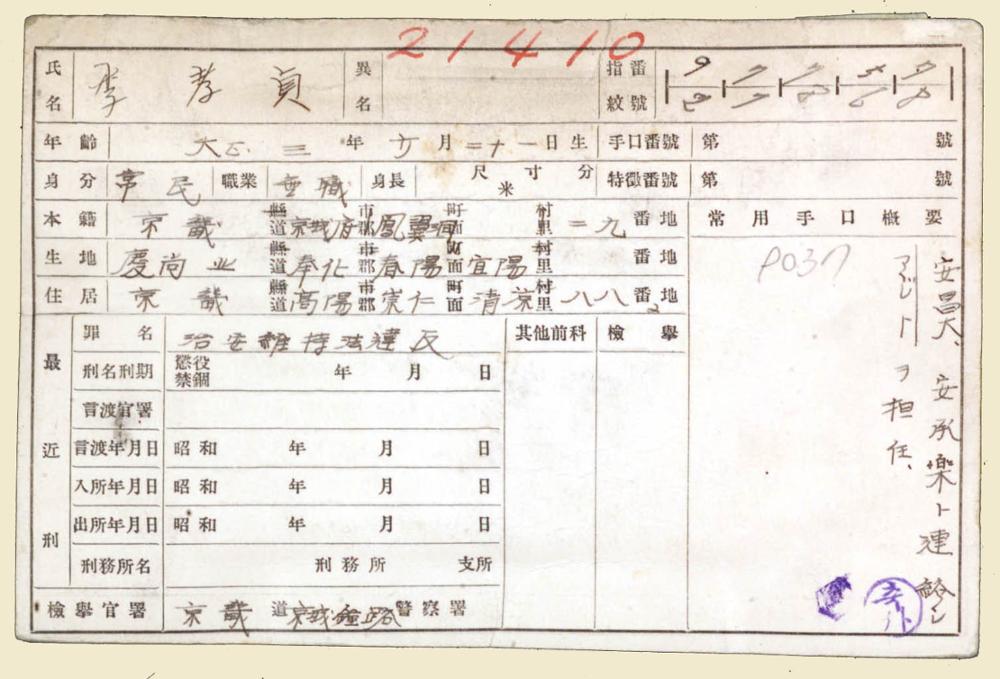 21410
氏名 李孝貞 異名 指紋番號
年齡 大正三年 月二十一日生 手口番號 第 號
身分 常民 職業 無職 身長 尺寸分 米 特徵番號 第 號
本籍 京畿 縣道 京城府 市郡 鳳翼洞 町面 村里 二九 番地 常用手口概要
生地 慶尚北 縣道 奉化 市郡 春陽 町面 宜陽 村里 番地
住居 京畿 縣道 高陽 市郡 崇仁 町面 清涼 村里 八八 番地 2
最近刑
罪名 治安維持法違反 其他前科 檢擧
刑名刑期 懲役 禁錮 年 月 日
言渡官署
言渡年月日 昭和 年 月 日
入所年月日 昭和 年 月 日
出所年月日 昭和 年 月 日
刑務所名 刑務所 支所
檢擧官署 京畿道 京城鐘路 警察署
安昌大、安承樂ト連絡シ
ヲ担任、